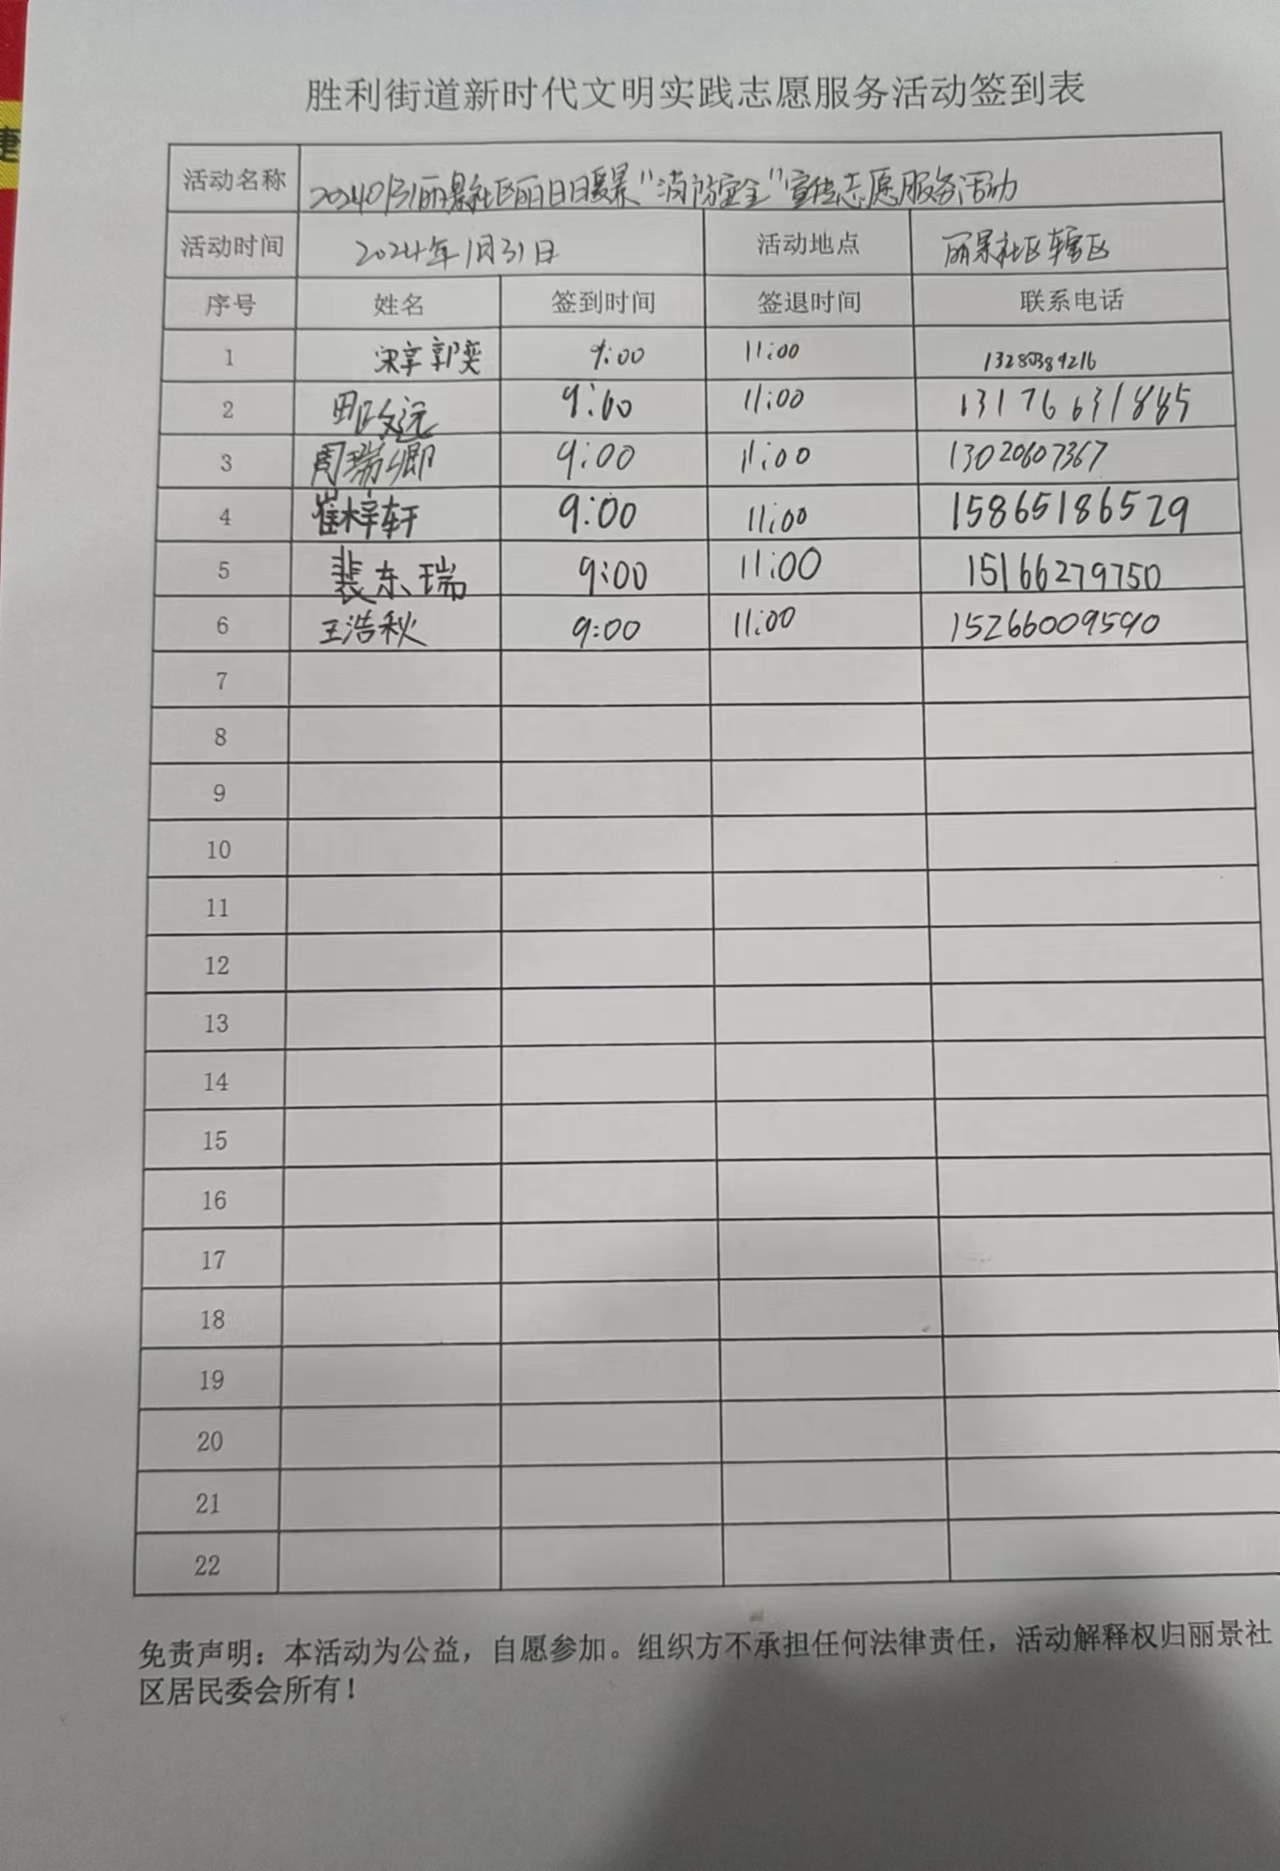 捷
胜利街道新时代文明实践志愿服务活动签到表
活动名称 20240131丽景社区丽日日暖景"消防安全"宣传志愿服务活动
活动时间 2024年1月31日 活动地点 丽景社区辖区
序号 姓名 签到时间 签退时间 联系电话
1 宋享郭奕 9:00 11:00 13280389216
2 田政远 9:00 11:00 13176631885
3 周瑞卿 9:00 11:00 13020607367
4 崔梓轩 9:00 11:00 15865186529
5 裴东瑞 9:00 11:00 15166279750
6 王浩秋 9:00 11:00 15266009590
7
8
9
10
11
12
13
14
15
16
17
18
19
20
21
22
免责声明：本活动为公益，自愿参加。组织方不承担任何法律责任，活动解释权归丽景社
区居民委会所有！